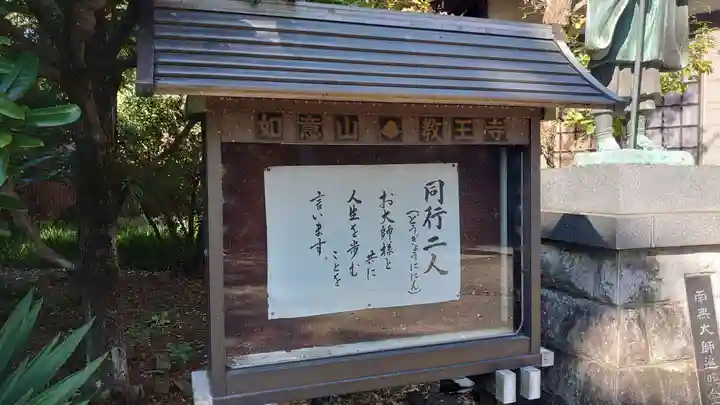 如意山 教王寺
同行二人
(どうぎょうににん)
お大師様と
共に
人生を歩む
ことを
言います。
南無大師遍照金